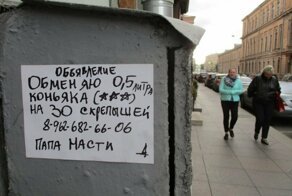 ОБЪЯВЛЕНИЕ
ОБМЕНЯЮ 0,5 ЛИТРА
КОНЬЯКА (***)
НА 30 СКРЕПЫШЕЙ
8-962-682-66-06
ПАПА НАСТИ